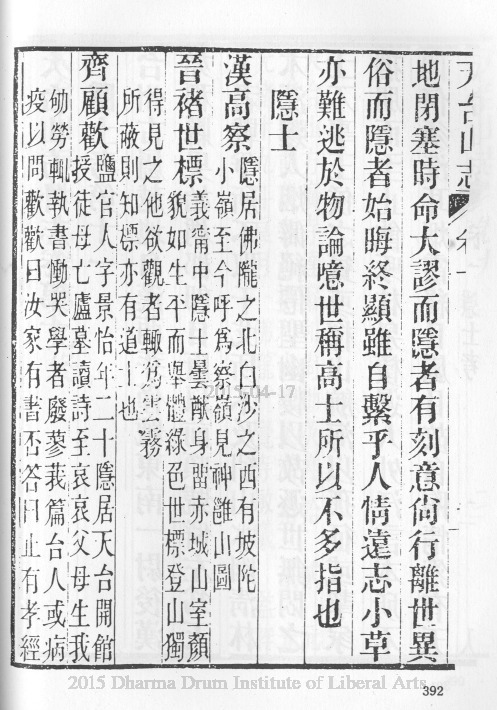 天台山志 卷一
地閉塞時命大謬而隱者有刻意尙行離世異
俗而隱者始晦終顯雖自繫乎人情遠志小草
亦難逃於物論噫世稱高士所以不多指也
隱士
漢高察
隱居佛隴之北白沙之西有坡陀
小嶺至今呼爲察嶺見神邕山圖
晉褚世標
義甯中隱士曇猷身畱赤城山室顏
貌如生平而舉體綠色世標登山獨
得見之他欲觀者輒爲雲霧
所蔽則知標亦有道士也
齊顧歡
鹽官人字景怡年二十隱居天台開館
授徒母亡廬墓讀詩至哀哀父母生我
劬勞輒執書慟哭學者廢蓼莪篇台人或病
疫以問歡歡曰汝家有書否答曰止有孝經
2015-04-17
2015 Dharma Drum Institute of Liberal Arts
392